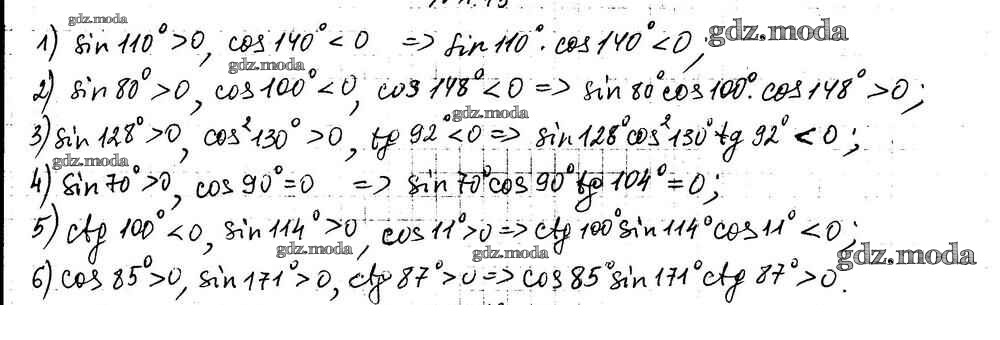 gdz.moda
1) sin 110° > 0, cos 140° < 0 => sin 110° · cos 140° < 0; gdz.moda
gdz.moda
2) sin 80° > 0, cos 100° < 0, cos 148° < 0 => sin 80° cos 100° · cos 148° > 0;
gdz.moda
3) sin 128° > 0, cos² 130° > 0, tg 92° < 0 => sin 128° cos² 130° tg 92° < 0;
gdz.moda
4) sin 70° > 0, cos 90° = 0 => sin 70° cos 90° tg 104° = 0;
5) ctg 100° < 0, sin 114° > 0, cos 11° > 0 => ctg 100° sin 114° cos 11° < 0;
gdz.moda gdz.moda gdz.moda
6) cos 85° > 0, sin 171° > 0, ctg 87° > 0 => cos 85° sin 171° ctg 87° > 0.